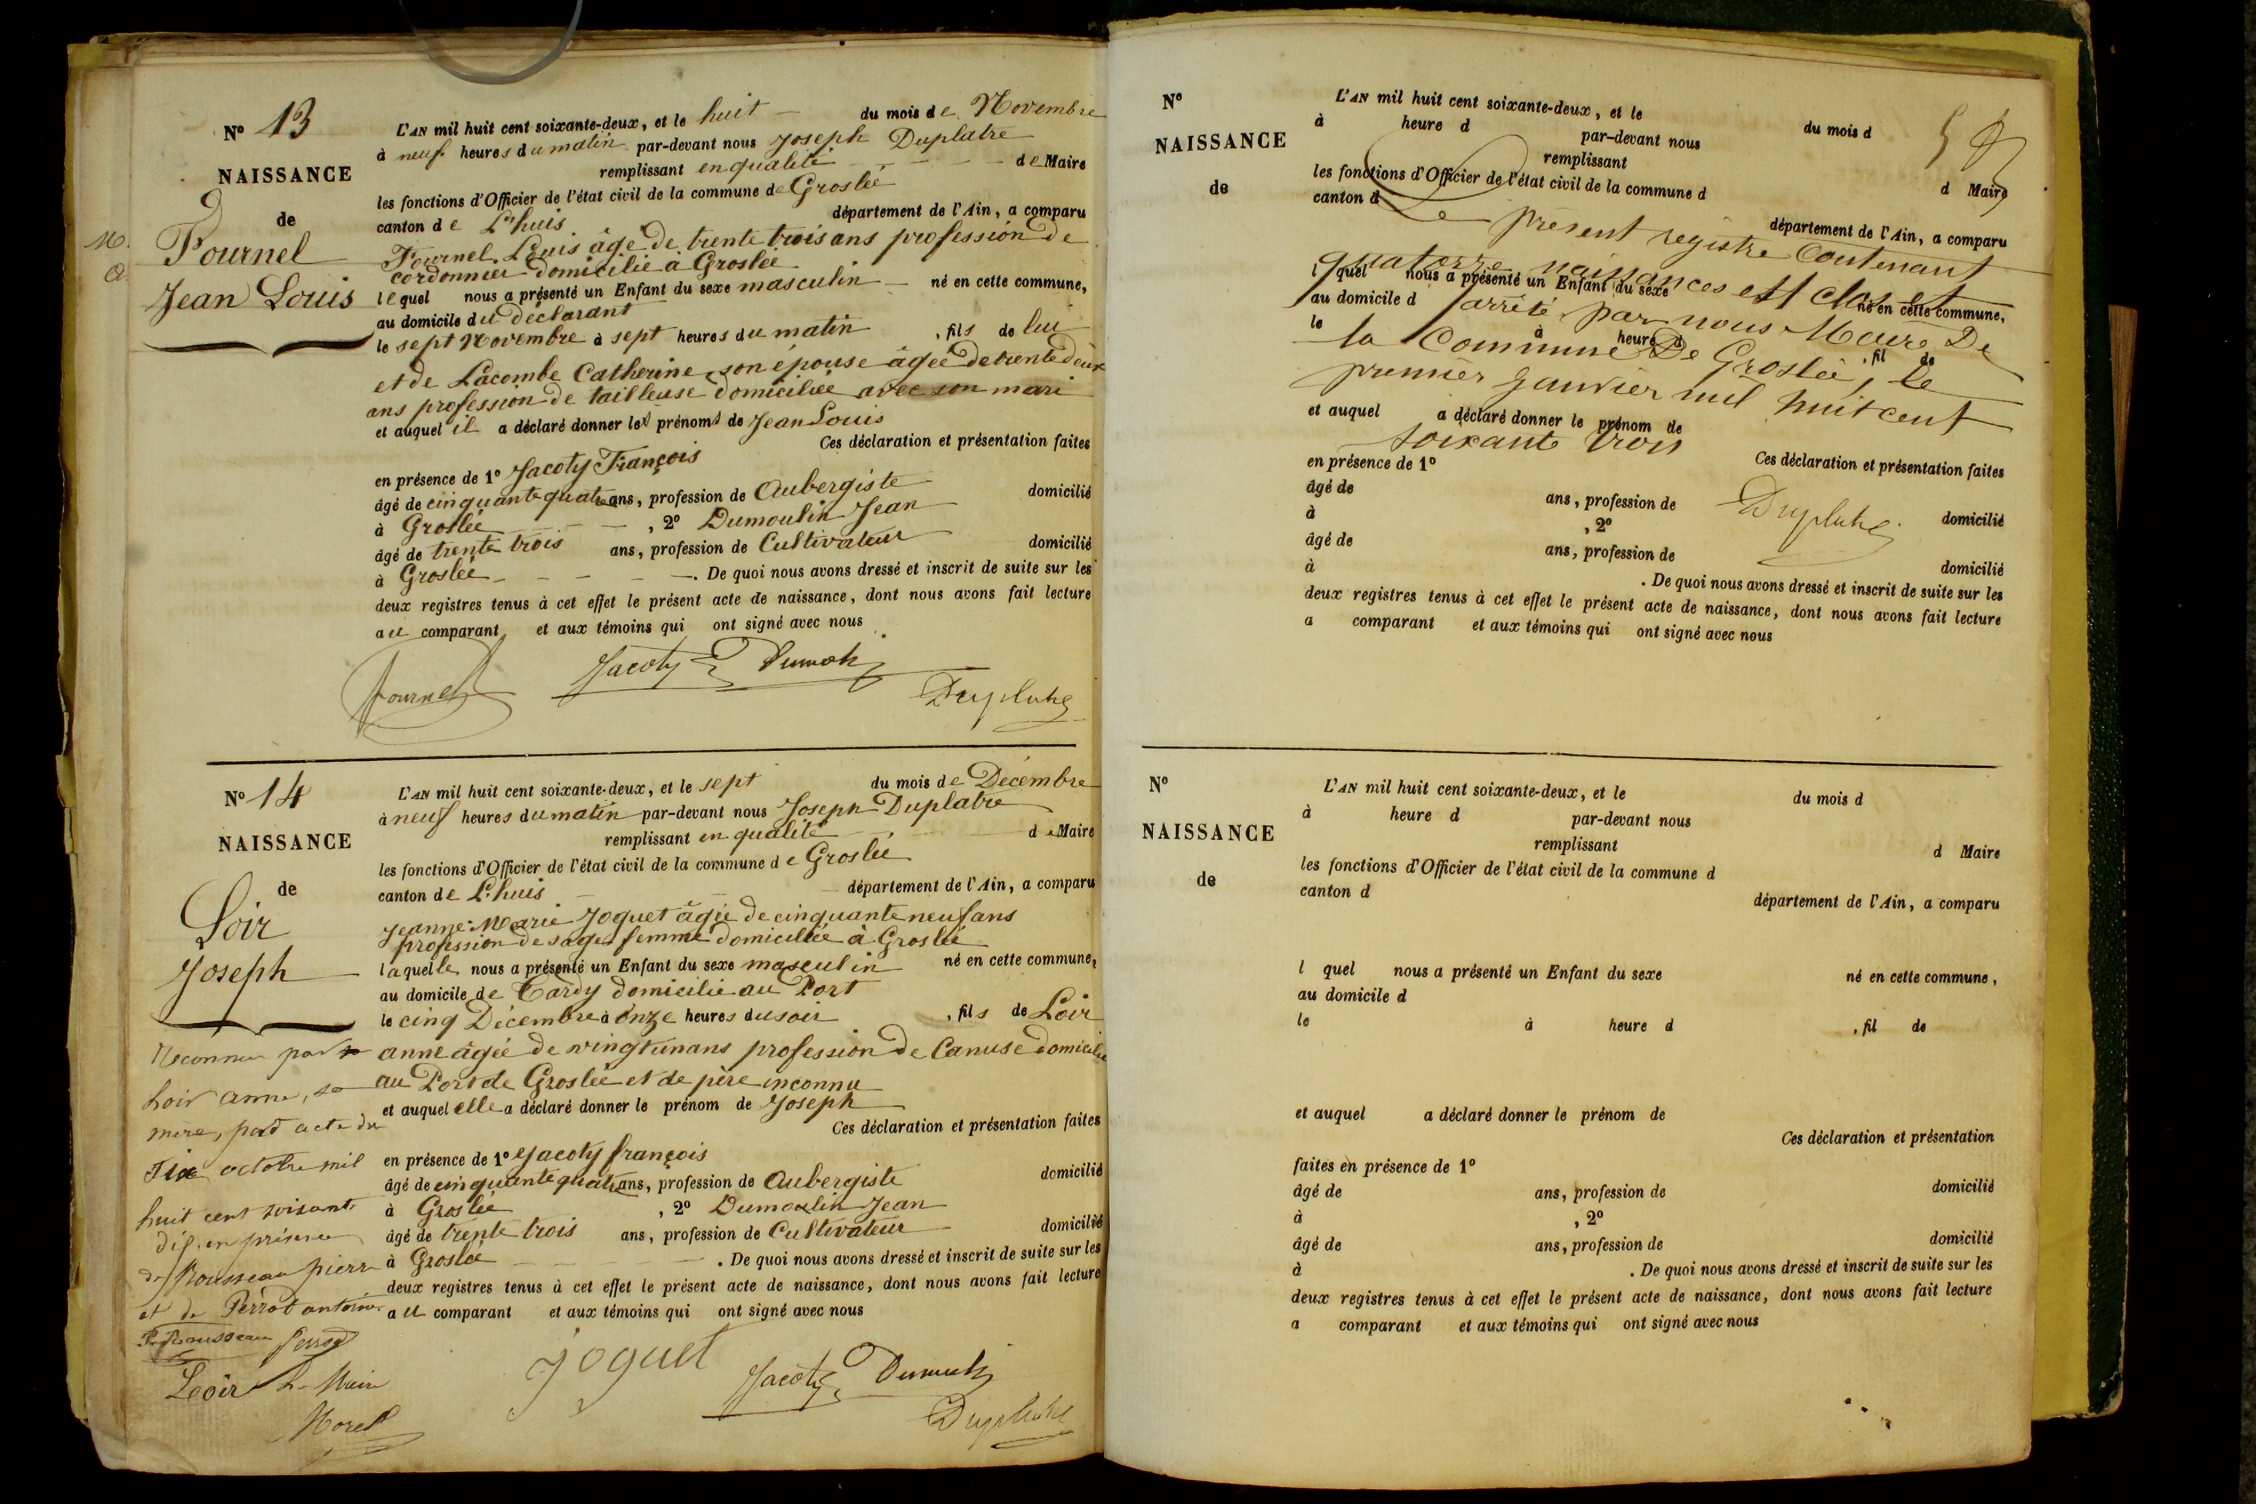 N° 13
NAISSANCE
de
Fournel
Jean Louis
L'AN mil huit cent soixante-deux, et le huit du mois de Novembre
à neuf heures du matin par-devant nous Joseph Duplatre
remplissant en qualité de Maire
les fonctions d'Officier de l'état civil de la commune de Groslée
canton de L'huis département de l'Ain, a comparu
Fournel Louis âgé de trente trois ans profession de
cordonnier domicilié à Groslée
lequel nous a présenté un Enfant du sexe masculin né en cette commune,
au domicile du déclarant
le sept Novembre à sept heures du matin , fils de lui
et de Lacombe Catherine, son épouse âgée de trente deux
ans profession de tailleuse domiciliée avec son mari
et auquel il a déclaré donner les prénoms de Jean Louis
Ces déclaration et présentation faites
en présence de 1° Jacoty François
âgé de cinquante quatre ans, profession de Aubergiste domicilié
à Groslée , 2° Dumoulin Jean
âgé de trente trois ans, profession de Cultivateur domicilié
à Groslée . De quoi nous avons dressé et inscrit de suite sur les
deux registres tenus à cet effet le présent acte de naissance, dont nous avons fait lecture
au comparant et aux témoins qui ont signé avec nous
Fournel Jacoty Dumoulin
Duplatre
N° 14
NAISSANCE
de
Loir
Joseph
Reconnu par
Loir anne, sa
mère, par acte du
six octobre mil
huit cent soixante
dix, en présence
de Rousseau pierre
et de Perrot antoine
P. Rousseau Perrot
Leoir Le Maire
Morel
L'AN mil huit cent soixante-deux, et le sept du mois de Décembre
à neuf heures du matin par-devant nous Joseph Duplatre
remplissant en qualité de Maire
les fonctions d'Officier de l'état civil de la commune de Groslée
canton de L'huis département de l'Ain, a comparu
Jeanne-Marie Joguet âgée de cinquante neuf ans
profession de sage femme domiciliée à Groslée
laquelle nous a présenté un Enfant du sexe masculin né en cette commune,
au domicile de Tardy domicilié au Port
le cinq Décembre à onze heures du soir , fils de Loir
anne âgée de vingt un ans profession de Canuse domiciliée
au Port de Groslée et de père inconnu
et auquel elle a déclaré donner le prénom de Joseph
Ces déclaration et présentation faites
en présence de 1° Jacoty françois
âgé de cinquante quatre ans, profession de Aubergiste domicilié
à Groslée , 2° Dumoulin Jean
âgé de trente trois ans, profession de Cultivateur domicilié
à Groslée . De quoi nous avons dressé et inscrit de suite sur les
deux registres tenus à cet effet le présent acte de naissance, dont nous avons fait lecture
au comparant et aux témoins qui ont signé avec nous
Joguet Jacoty Dumoulin
Duplatre
N°
NAISSANCE
de
L'AN mil huit cent soixante-deux, et le du mois d
à heure d par-devant nous
remplissant d Maire
les fonctions d'Officier de l'état civil de la commune d
canton d département de l'Ain, a comparu
Le présent registre Contenant
quatorze naissances est clos et
l quel nous a présenté un Enfant du sexe né en cette commune,
au domicile d
arrêté par nous Maire De
le à heure d , fil de
la Commune De Groslée, Le
premier Janvier mil huit cent
et auquel a déclaré donner le prénom de
soixante trois
Ces déclaration et présentation faites
en présence de 1°
âgé de ans, profession de domicilié
Duplatre
à , 2°
âgé de ans, profession de domicilié
à . De quoi nous avons dressé et inscrit de suite sur les
deux registres tenus à cet effet le présent acte de naissance, dont nous avons fait lecture
a comparant et aux témoins qui ont signé avec nous
N°
NAISSANCE
de
L'AN mil huit cent soixante-deux, et le du mois d
à heure d par-devant nous
remplissant d Maire
les fonctions d'Officier de l'état civil de la commune d
canton d département de l'Ain, a comparu
l quel nous a présenté un Enfant du sexe né en cette commune,
au domicile d
le à heure d , fil de
et auquel a déclaré donner le prénom de
Ces déclaration et présentation
faites en présence de 1°
âgé de ans, profession de domicilié
à , 2°
âgé de ans, profession de domicilié
à . De quoi nous avons dressé et inscrit de suite sur les
deux registres tenus à cet effet le présent acte de naissance, dont nous avons fait lecture
a comparant et aux témoins qui ont signé avec nous